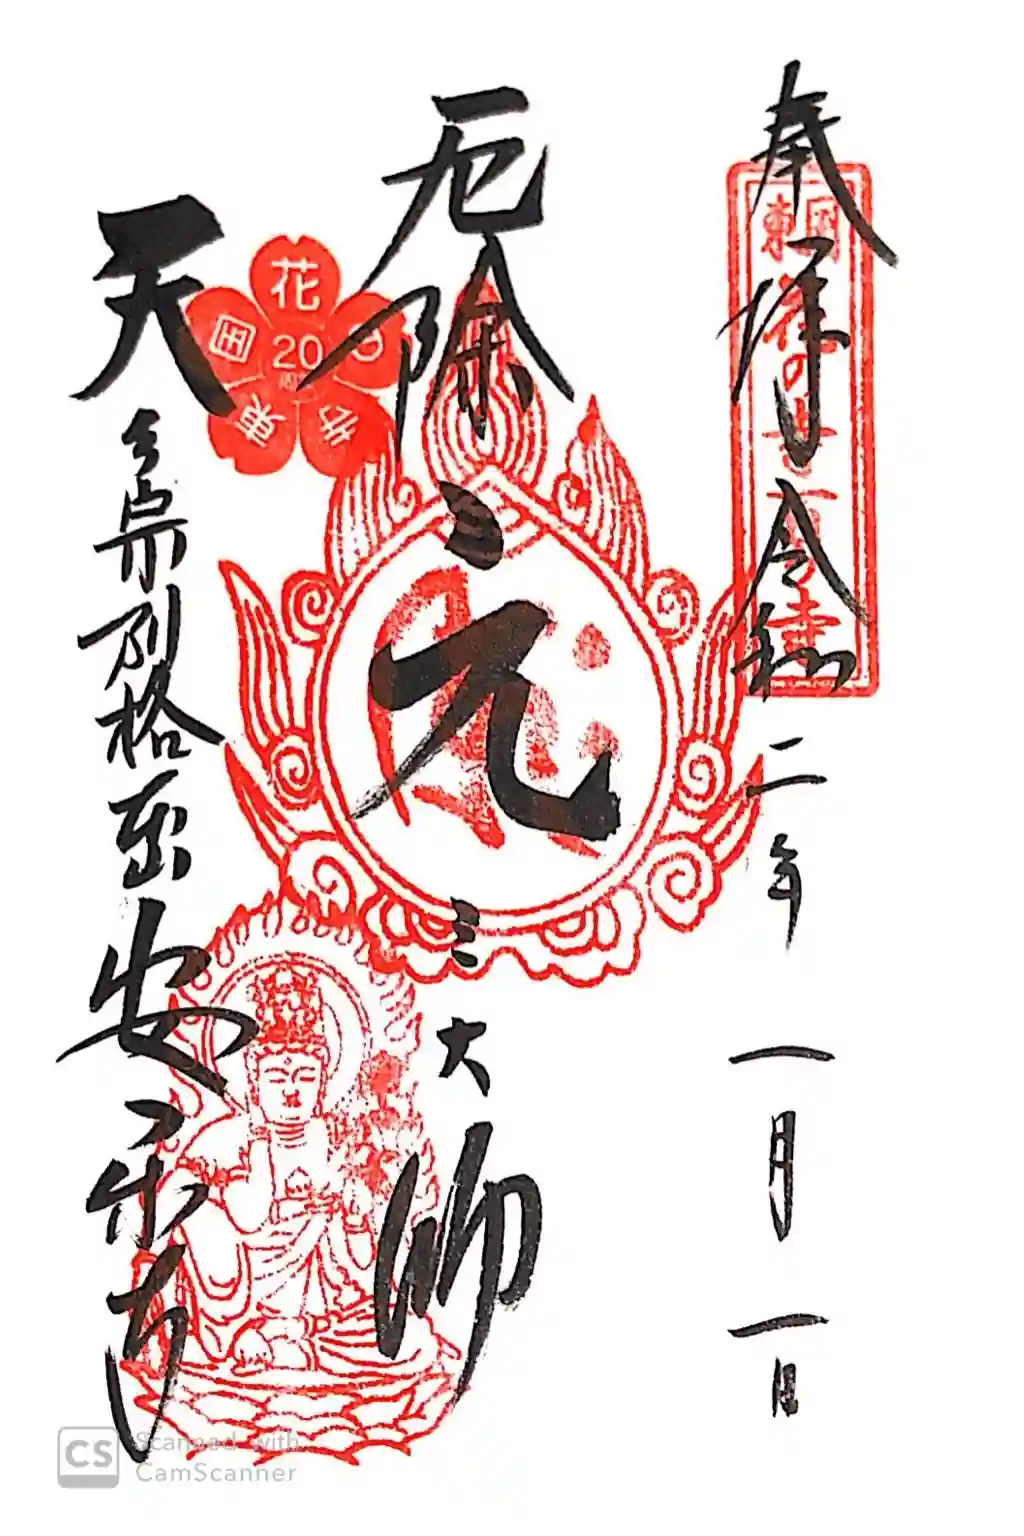 奉拝 令和二年 一月 一日
東国花の寺百ヶ寺
厄除 元三大師
花の寺 東国 20周年
天台宗別格本山 安楽寺
CS Scanned with
CamScanner